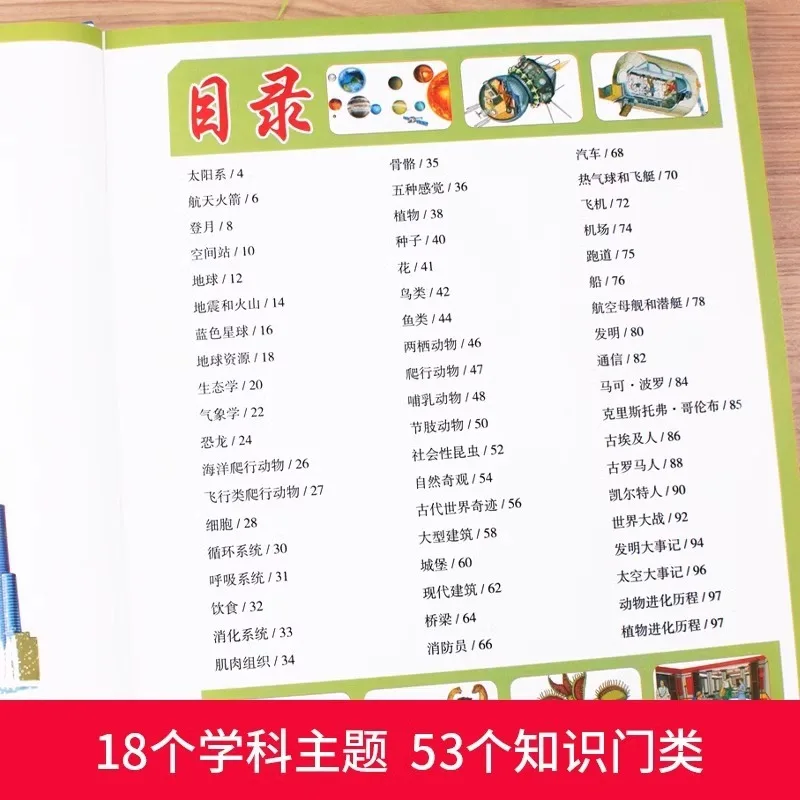 目录
太阳系 / 4
航天火箭 / 6
登月 / 8
空间站 / 10
地球 / 12
地震和火山 / 14
蓝色星球 / 16
地球资源 / 18
生态学 / 20
气象学 / 22
恐龙 / 24
海洋爬行动物 / 26
飞行类爬行动物 / 27
细胞 / 28
循环系统 / 30
呼吸系统 / 31
饮食 / 32
消化系统 / 33
肌肉组织 / 34
骨骼 / 35
五种感觉 / 36
植物 / 38
种子 / 40
花 / 41
鸟类 / 42
鱼类 / 44
两栖动物 / 46
爬行动物 / 47
哺乳动物 / 48
节肢动物 / 50
社会性昆虫 / 52
自然奇观 / 54
古代世界奇迹 / 56
大型建筑 / 58
城堡 / 60
现代建筑 / 62
桥梁 / 64
消防员 / 66
汽车 / 68
热气球和飞艇 / 70
飞机 / 72
机场 / 74
跑道 / 75
船 / 76
航空母舰和潜艇 / 78
发明 / 80
通信 / 82
马可·波罗 / 84
克里斯托弗·哥伦布 / 85
古埃及人 / 86
古罗马人 / 88
凯尔特人 / 90
世界大战 / 92
发明大事记 / 94
太空大事记 / 96
动物进化历程 / 97
植物进化历程 / 97
18个学科主题 53个知识门类